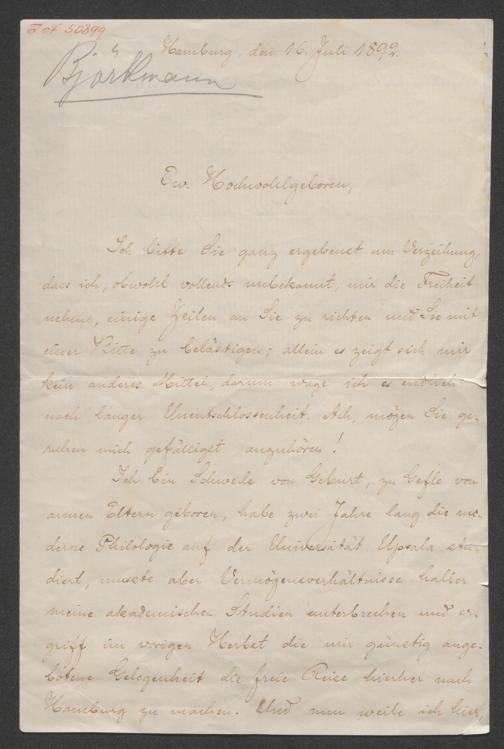 Björkmann
Hamburg, den 16. Juli 1892.
Ew. Hochwohlgeboren,
Ich bitte Sie ganz ergebenst um Verzeihung,
dass ich, obwohl vollends unbekannt, mir die Freiheit
nehme, einige Zeilen an Sie zu richten und Sie mit
einer Bitte zu belästigen; allein es zeigt sich mir
kein anderes Mittel, darum wage ich es endlich
nach langer Unentschlossenheit. Ach, mögen Sie ge-
ruhen mich gefälligst anzuhören!
Ich bin Schwede von Geburt, zu Gefle von
armen Eltern geboren, habe zwei Jahre lang die mo-
derne Philologie auf der Universität Upsala stu-
diert, musste aber Vermögensverhältnisse halber
meine akademischen Studien unterbrechen und er-
griff im vorigen Herbst die mir günstig ange-
botene Gelegenheit die freie Reise hierher nach
Hamburg zu machen. Und nun weile ich hier,